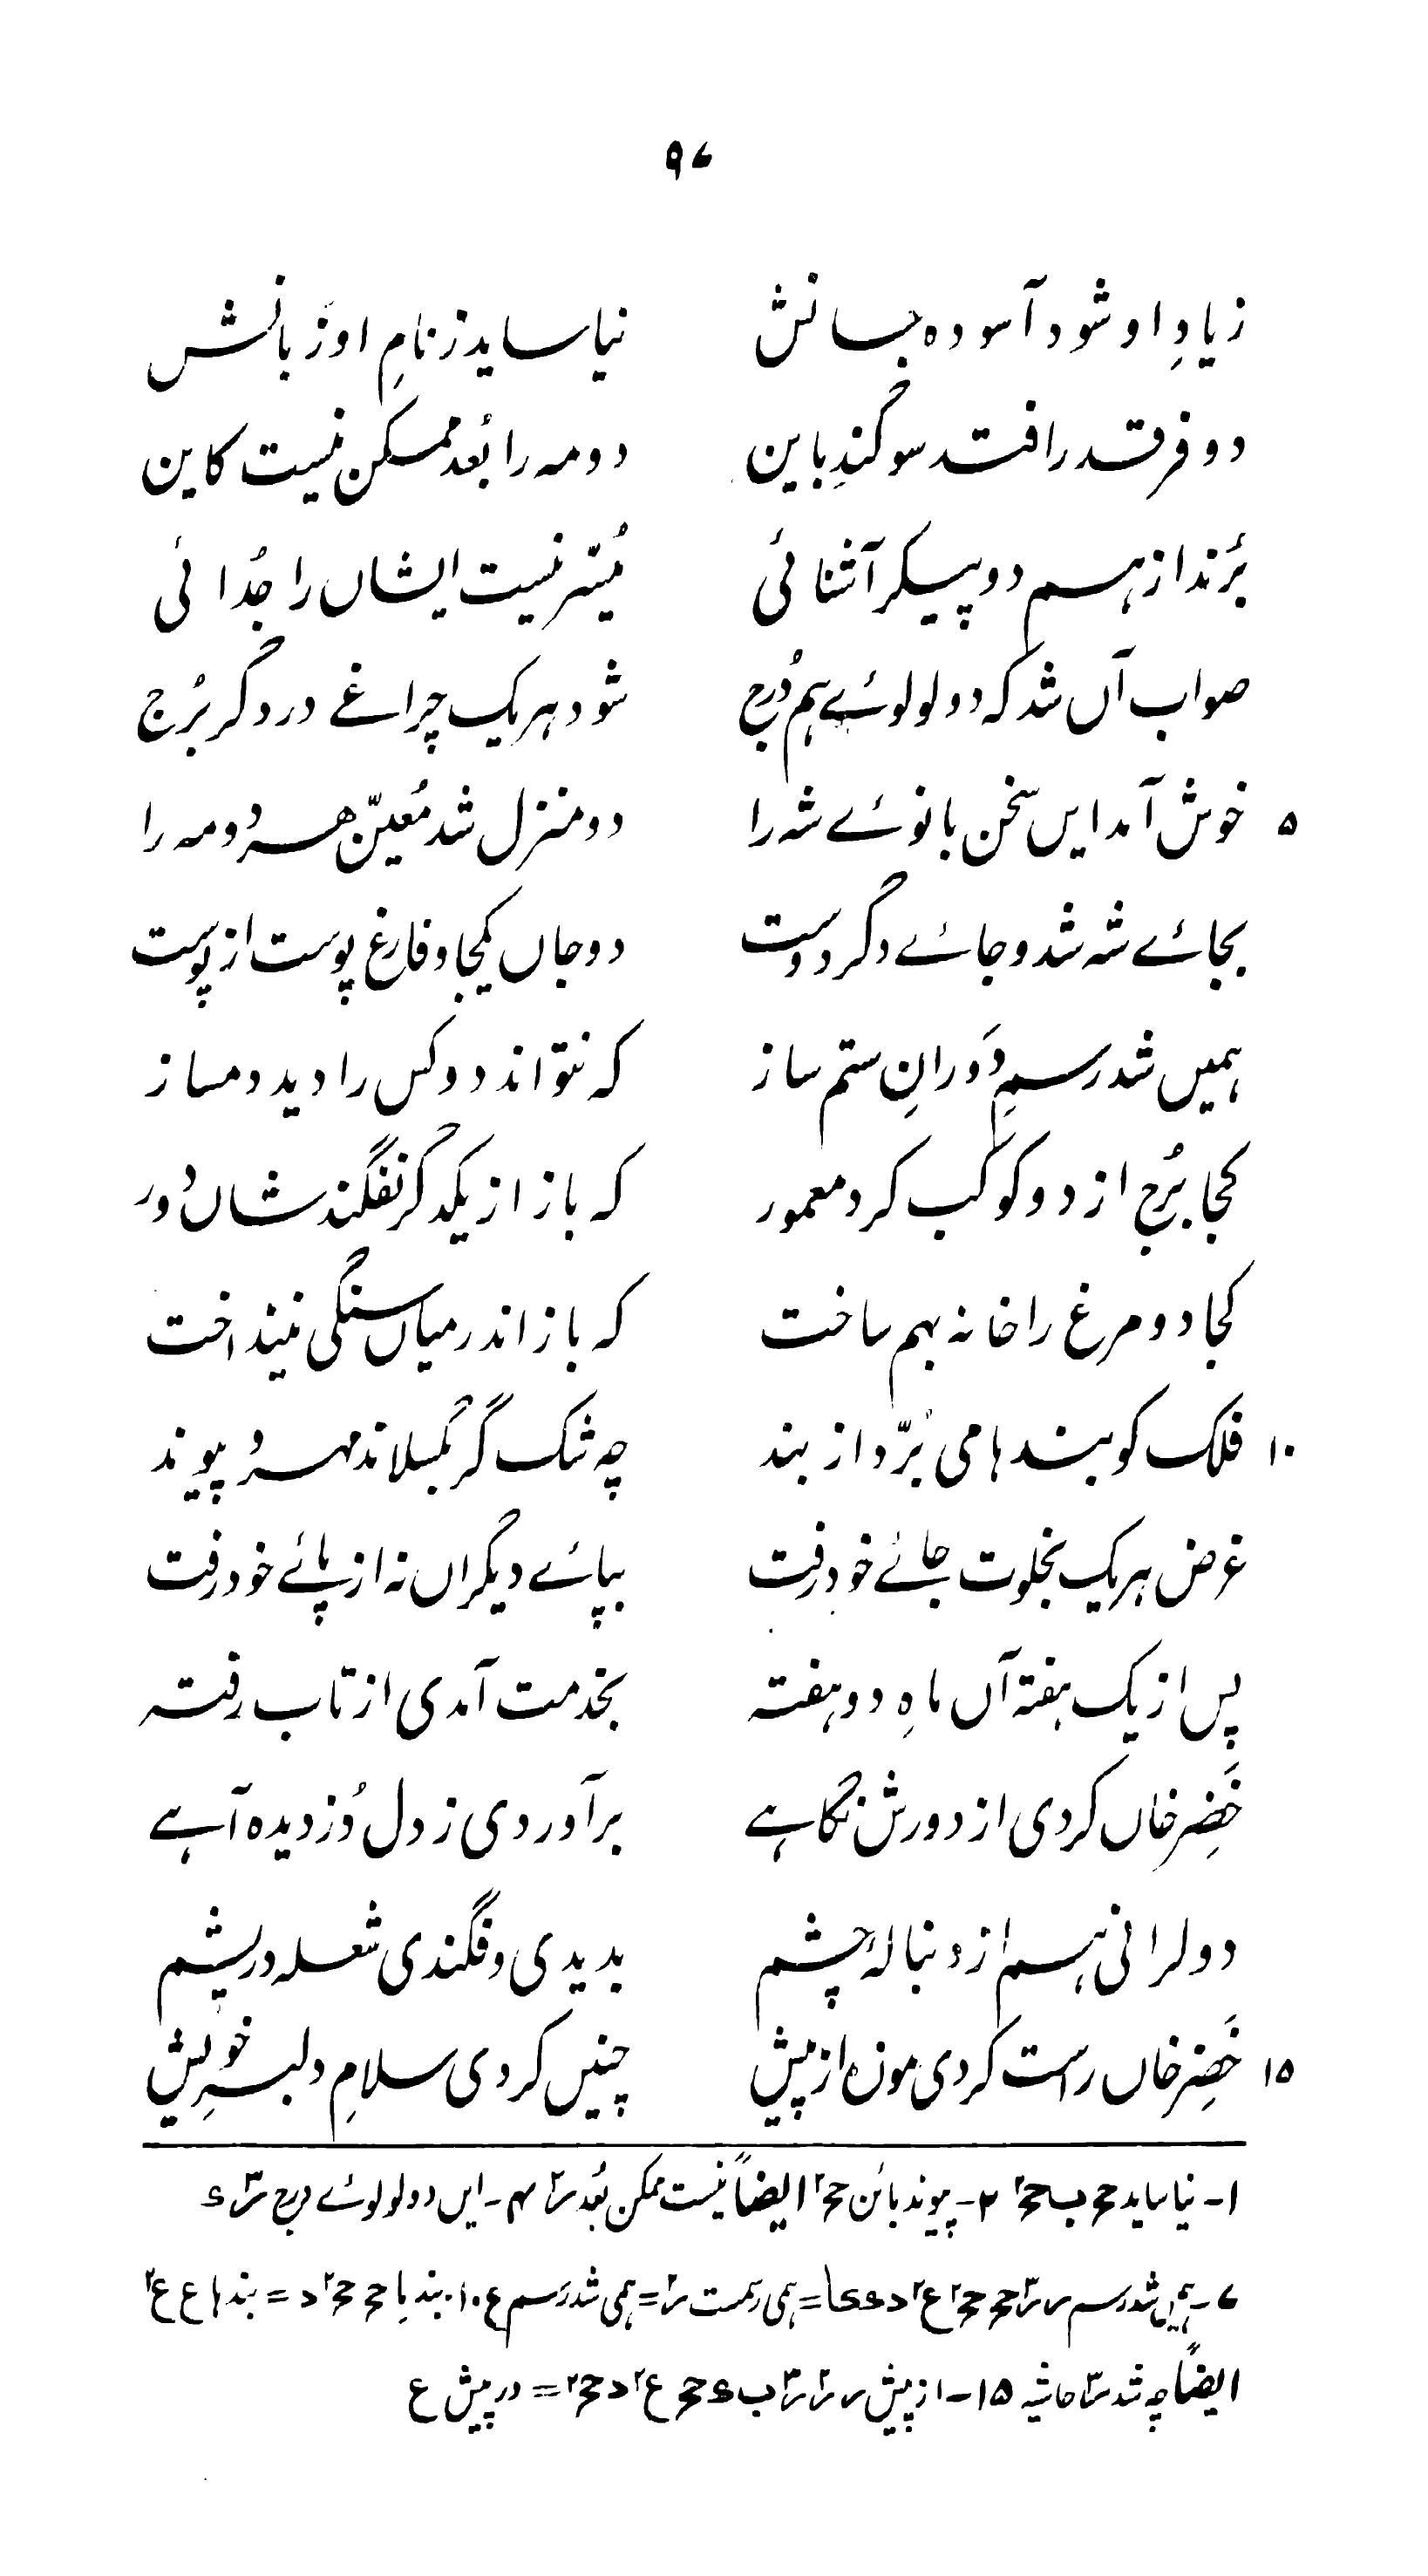 ۹۷
زیادِ او شود آسوده جانش نیاساید ز نامِ او زبانش
دو فرقد را فتد سوگندِ باین دو مه را بُعد ممکن نیست کاین
بُرند از هم دو پیکر آشنائی مُیسّر نیست ایشاں را جُدائی
صواب آں شد که دو لولوئے هم دُرج شود هر یک چراغے در دگر بُرج
۵ خوش آمد ایں سخن بانوئے شه را دو منزل شد مُعیّن هر دو مه را
بجائے شه شد و جائے دگر دوست دو جاں یکجا و فارغ پوست از پوست
همیں شد رسمِ دَورانِ ستم ساز که نتواند دو کس را دید دمساز
کجا بُرج از دو کوکب کرد معمور که باز از یکدگر نفگند شاں دُور
کجا دو مرغ را خانه بهم ساخت که باز اندر میاں سنگی نینداخت
۱۰ فلک کو بندها می بُرّد از بند چه شک گر بگسلاند مهر و پیوند
غرض هر یک بخلوت جائے خود رفت بپائے دیگراں نه از پائے خود رفت
پس از یک هفته آں ماهِ دو هفته بخدمت آمدی از تاب رفته
خَضِر خاں کردی از دورش نگاهے برآوردی ز دل دُزدیده آهے
دولرانی هم از دنبالۀ چشم بدیدی و فگندی شعله در پشم
۱۵ خَضِر خاں راست کردی موزه از پیش چنیں کردی سلامِ دلبرِ خویش
۱- نیاساید حح ب حح۲ ۲- پیوند بائن حح۲ ایضاً نیست ممکن بُعد س۲ ۴- ایں دو لولوئے درج س۳ ء
۷- همیں شد رسم س س۳ حح حح۲ ع۲ د = همی رسمت س۲ = همی شد رسم ع ۱۰. بند با حح حح۲ د = بندها ع ع۲
ایضاً چه شد س۳ حاشیه ۱۵- از پیش س س۲ س۳ ب ء حح ع۲ د حح۲ = در پیش ع